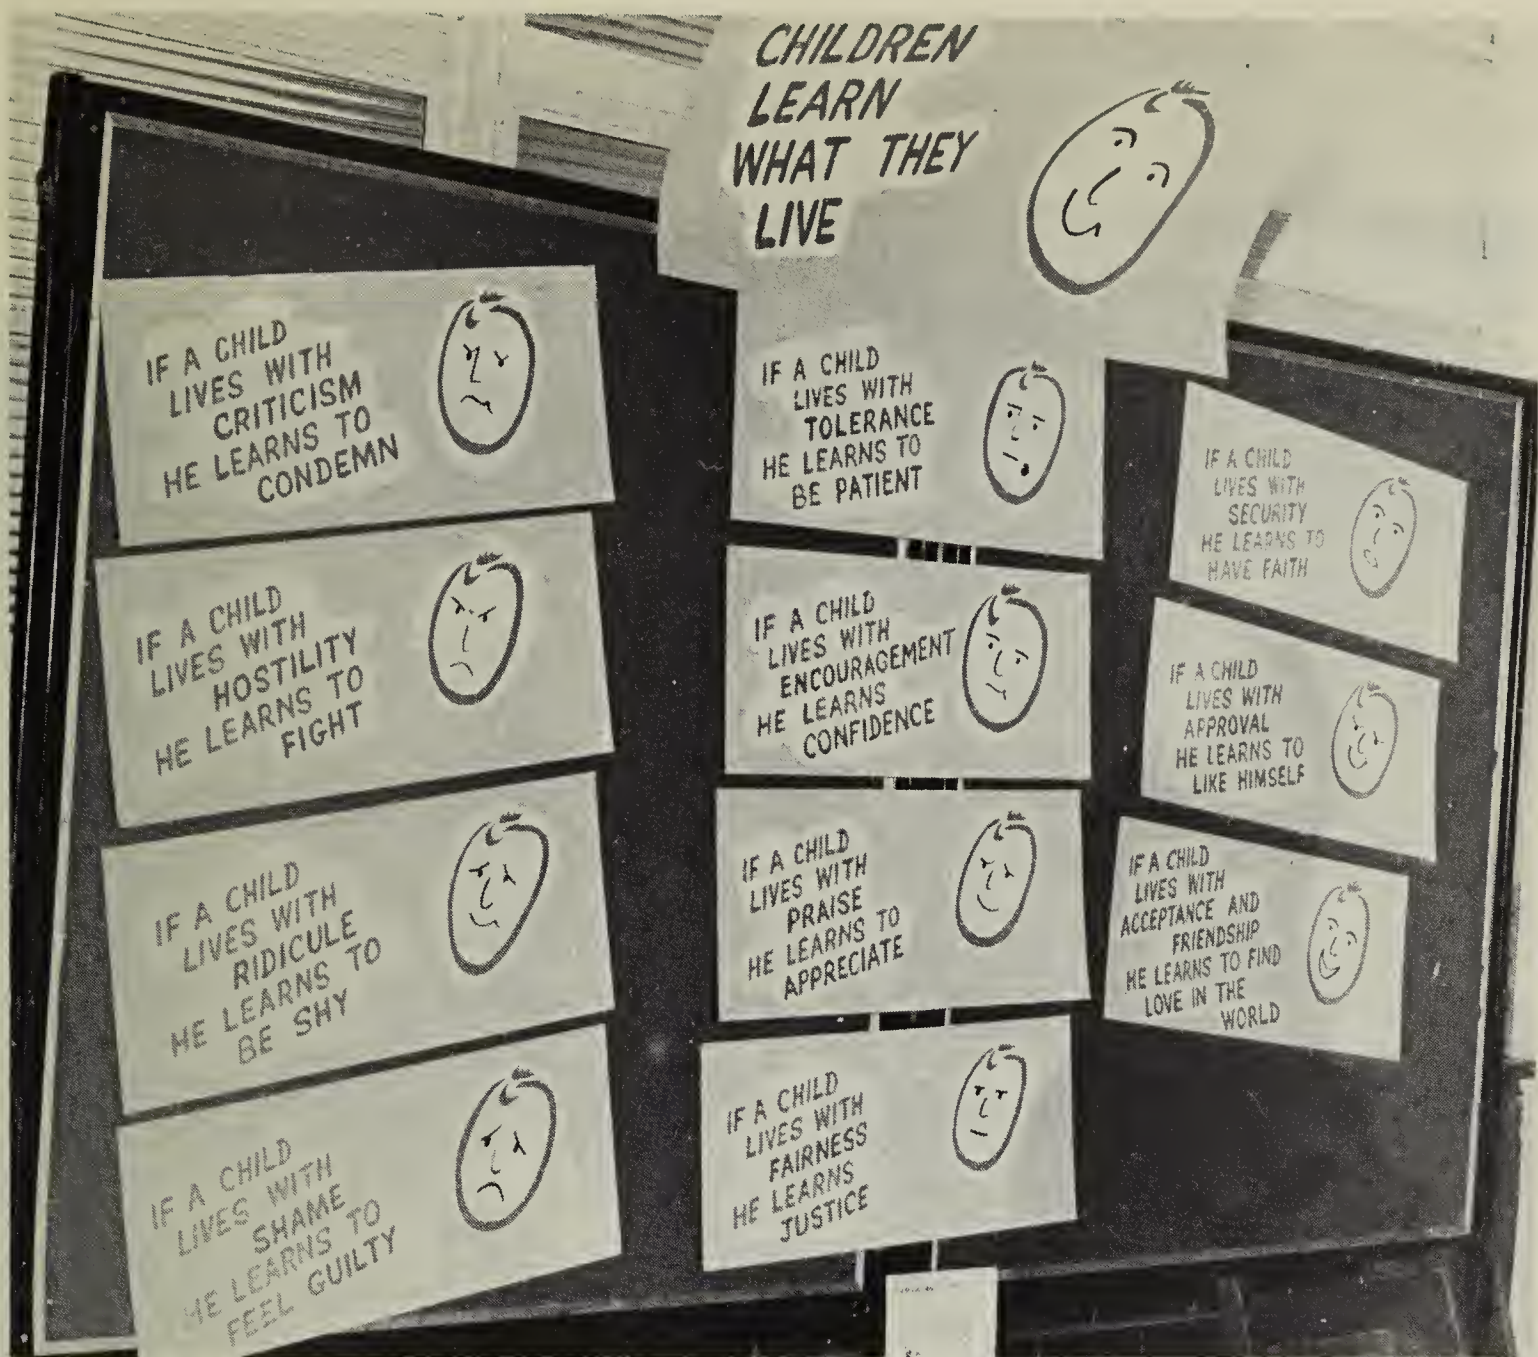 CHILDREN
LEARN
WHAT THEY
LIVE
IF A CHILD
LIVES WITH
CRITICISM
HE LEARNS TO
CONDEMN
IF A CHILD
LIVES WITH
HOSTILITY
HE LEARNS TO
FIGHT
IF A CHILD
LIVES WITH
RIDICULE
HE LEARNS TO
BE SHY
IF A CHILD
LIVES WITH
SHAME
HE LEARNS TO
FEEL GUILTY
IF A CHILD
LIVES WITH
TOLERANCE
HE LEARNS TO
BE PATIENT
IF A CHILD
LIVES WITH
ENCOURAGEMENT
HE LEARNS
CONFIDENCE
IF A CHILD
LIVES WITH
PRAISE
HE LEARNS TO
APPRECIATE
IF A CHILD
LIVES WITH
FAIRNESS
HE LEARNS
JUSTICE
IF A CHILD
LIVES WITH
SECURITY
HE LEARNS TO
HAVE FAITH
IF A CHILD
LIVES WITH
APPROVAL
HE LEARNS TO
LIKE HIMSELF
IF A CHILD
LIVES WITH
ACCEPTANCE AND
FRIENDSHIP
HE LEARNS TO FIND
LOVE IN THE
WORLD